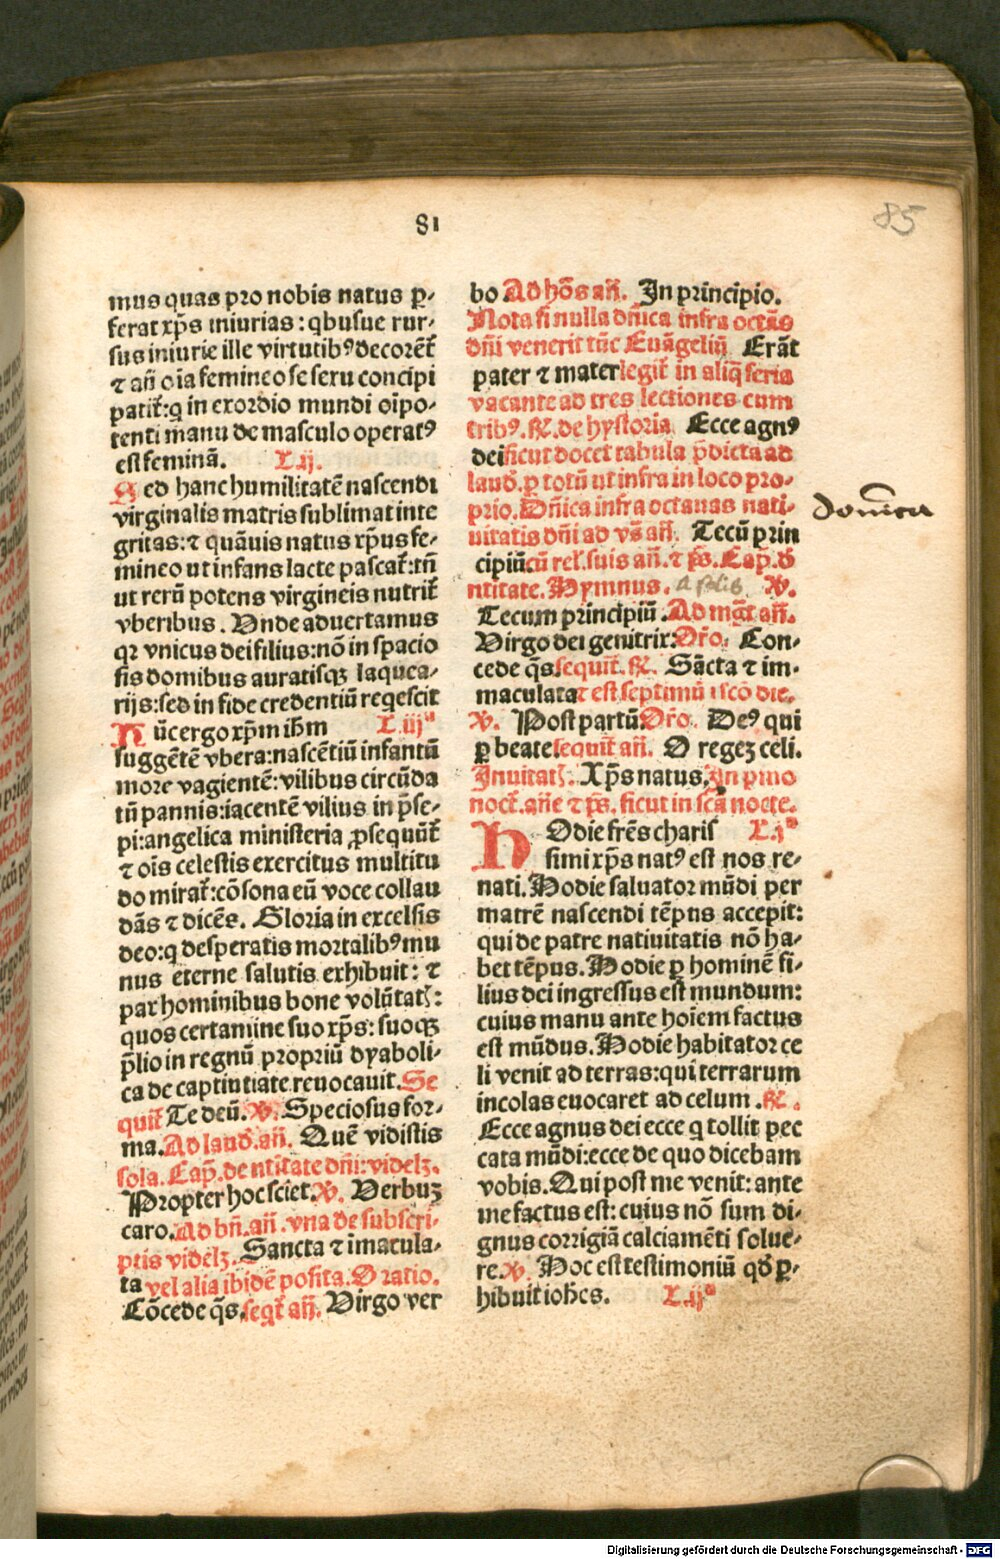 81
85
mus quas pro nobis natus ꝑ-
ferat xp̄s iniurias: qbusue rur-
sus iniurie ille virtutibꝰ decorēt̄
⁊ añ oīa femineo se seru concipi
patit̄: q in exordio mundi oīpo-
tenti manu de masculo operatꝰ
est feminā. L.ij.
Sed hanc humilitatē nascendi
virginalis matris sublimat inte
gritas: ⁊ quāuis natus xp̄us fe-
mineo ut infans lacte pascat̄: tñ
ut rerū potens virgineis nutrit̄
vberibus. Vnde aduertamus
qꝛ vnicus dei filius: nō in spacio
sis domibus auratisqꝫ laquea-
rijs: sed in fide credentiū reqescit
Nūc ergo xp̄m ihm L.iijᵃ
suggētē vbera: nascētiū infantū
more vagientē: vilibus circūda
tū pannis: iacentē vilius in p̄se-
pi: angelica ministeria ꝓsequūt̄
⁊ oīs celestis exercitus multitu
do mirat̄: cōsona eū voce collau
dās ⁊ dicēs. Gloria in excelsis
deo: q desperatis mortalibꝰ mu
nus eterne salutis exhibuit: ⁊
pax hominibus bone volūtatꝭ:
quos certamine suo xp̄s: suoqꝫ
p̄lio in regnū propriū dyaboli-
ca de captiutiate reuocauit. Se
quit̄ Te deū. V. Speciosus for-
ma. Ad laud. añ. Quē vidistis
sola. Cap̄. de ntītate dñi: videlꝫ.
Propter hoc sciet. V. Verbuꝫ
caro. Ad bñ. añ. vna de subscri-
ptis videlꝫ. Sancta ⁊ imacula-
ta vel alia ibidē posita. Oratio.
Cōcede q̄s. seqt̄ añ. Virgo ver
bo Ad hōs añ. In principio.
Nota si nulla dñica infra octās
dñi venerit tūc Euāgeliū Erāt
pater ⁊ mater legit̄ in aliq̄ feria
vacante ad tres lectiones cum
tribꝰ. R. de hystoria Ecce agnꝰ
dei sicut docet tabula p̄dicta ad
laud. ꝑ totū ut infra in loco pro-
prio. Dñica infra octauas nati-
uitatis dñi ad vs̄ añ. Tecū prin
cipiū cū rel. suis añ. ⁊ p̄s. Cap̄. d̄
ntitate. Hymnus. A solis V.
Tecum principiū. Ad mgt̄ añ.
Virgo dei genitrix. Or̄o. Con-
cede q̄s sequit̄. R. Sācta ⁊ im-
maculata ⁊ est septimū ī scō die.
V. Post partū Or̄o. Deꝰ qui
ꝑ beate sequit̄ añ. O regeꝫ celi.
Inuitatꝭ. Xp̄s natus, In pmo
noct̄. añe ⁊ p̄s. sicut in scā nocte.
Hodie frēs charis L.jᵃ
simi xp̄s natꝰ est nos re-
nati. Hodie saluator mūdi per
matrē nascendi tēpus accepit:
qui de patre natiuitatis nō ha-
bet tēpus. Hodie ꝑ hominē fi-
lius dei ingressus est mundum:
cuius manu ante hoīem factus
est mūdus. Hodie habitator ce
li venit ad terras: qui terrarum
incolas euocaret ad celum. R.
Ecce agnus dei ecce q tollit pec
cata mūdi: ecce de quo dicebam
vobis. Qui post me venit: ante
me factus est: cuius nō sum di-
gnus corrigiā calciamēti solue-
re. V. Hoc est testimoniū qd̄ ꝑ-
hibuit iohēs. L.ijᵃ
dominica
Digitalisierung gefördert durch die Deutsche Forschungsgemeinschaft - DFG